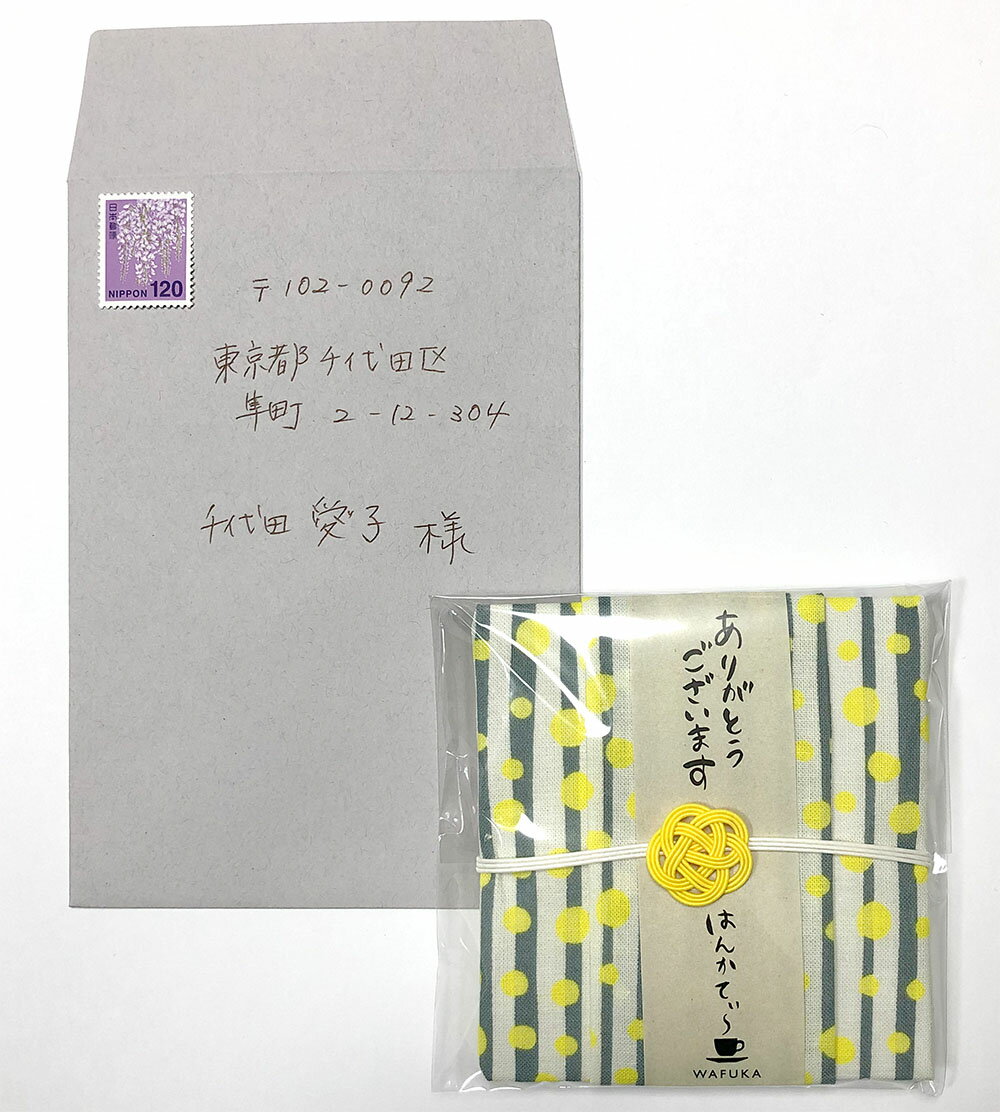 日本郵便
NIPPON 120
〒102-0092
東京都千代田区
隼町 2-12-304
千代田 愛子 様
ありがとう
ございます
はんかてぃ〜
WAFUKA